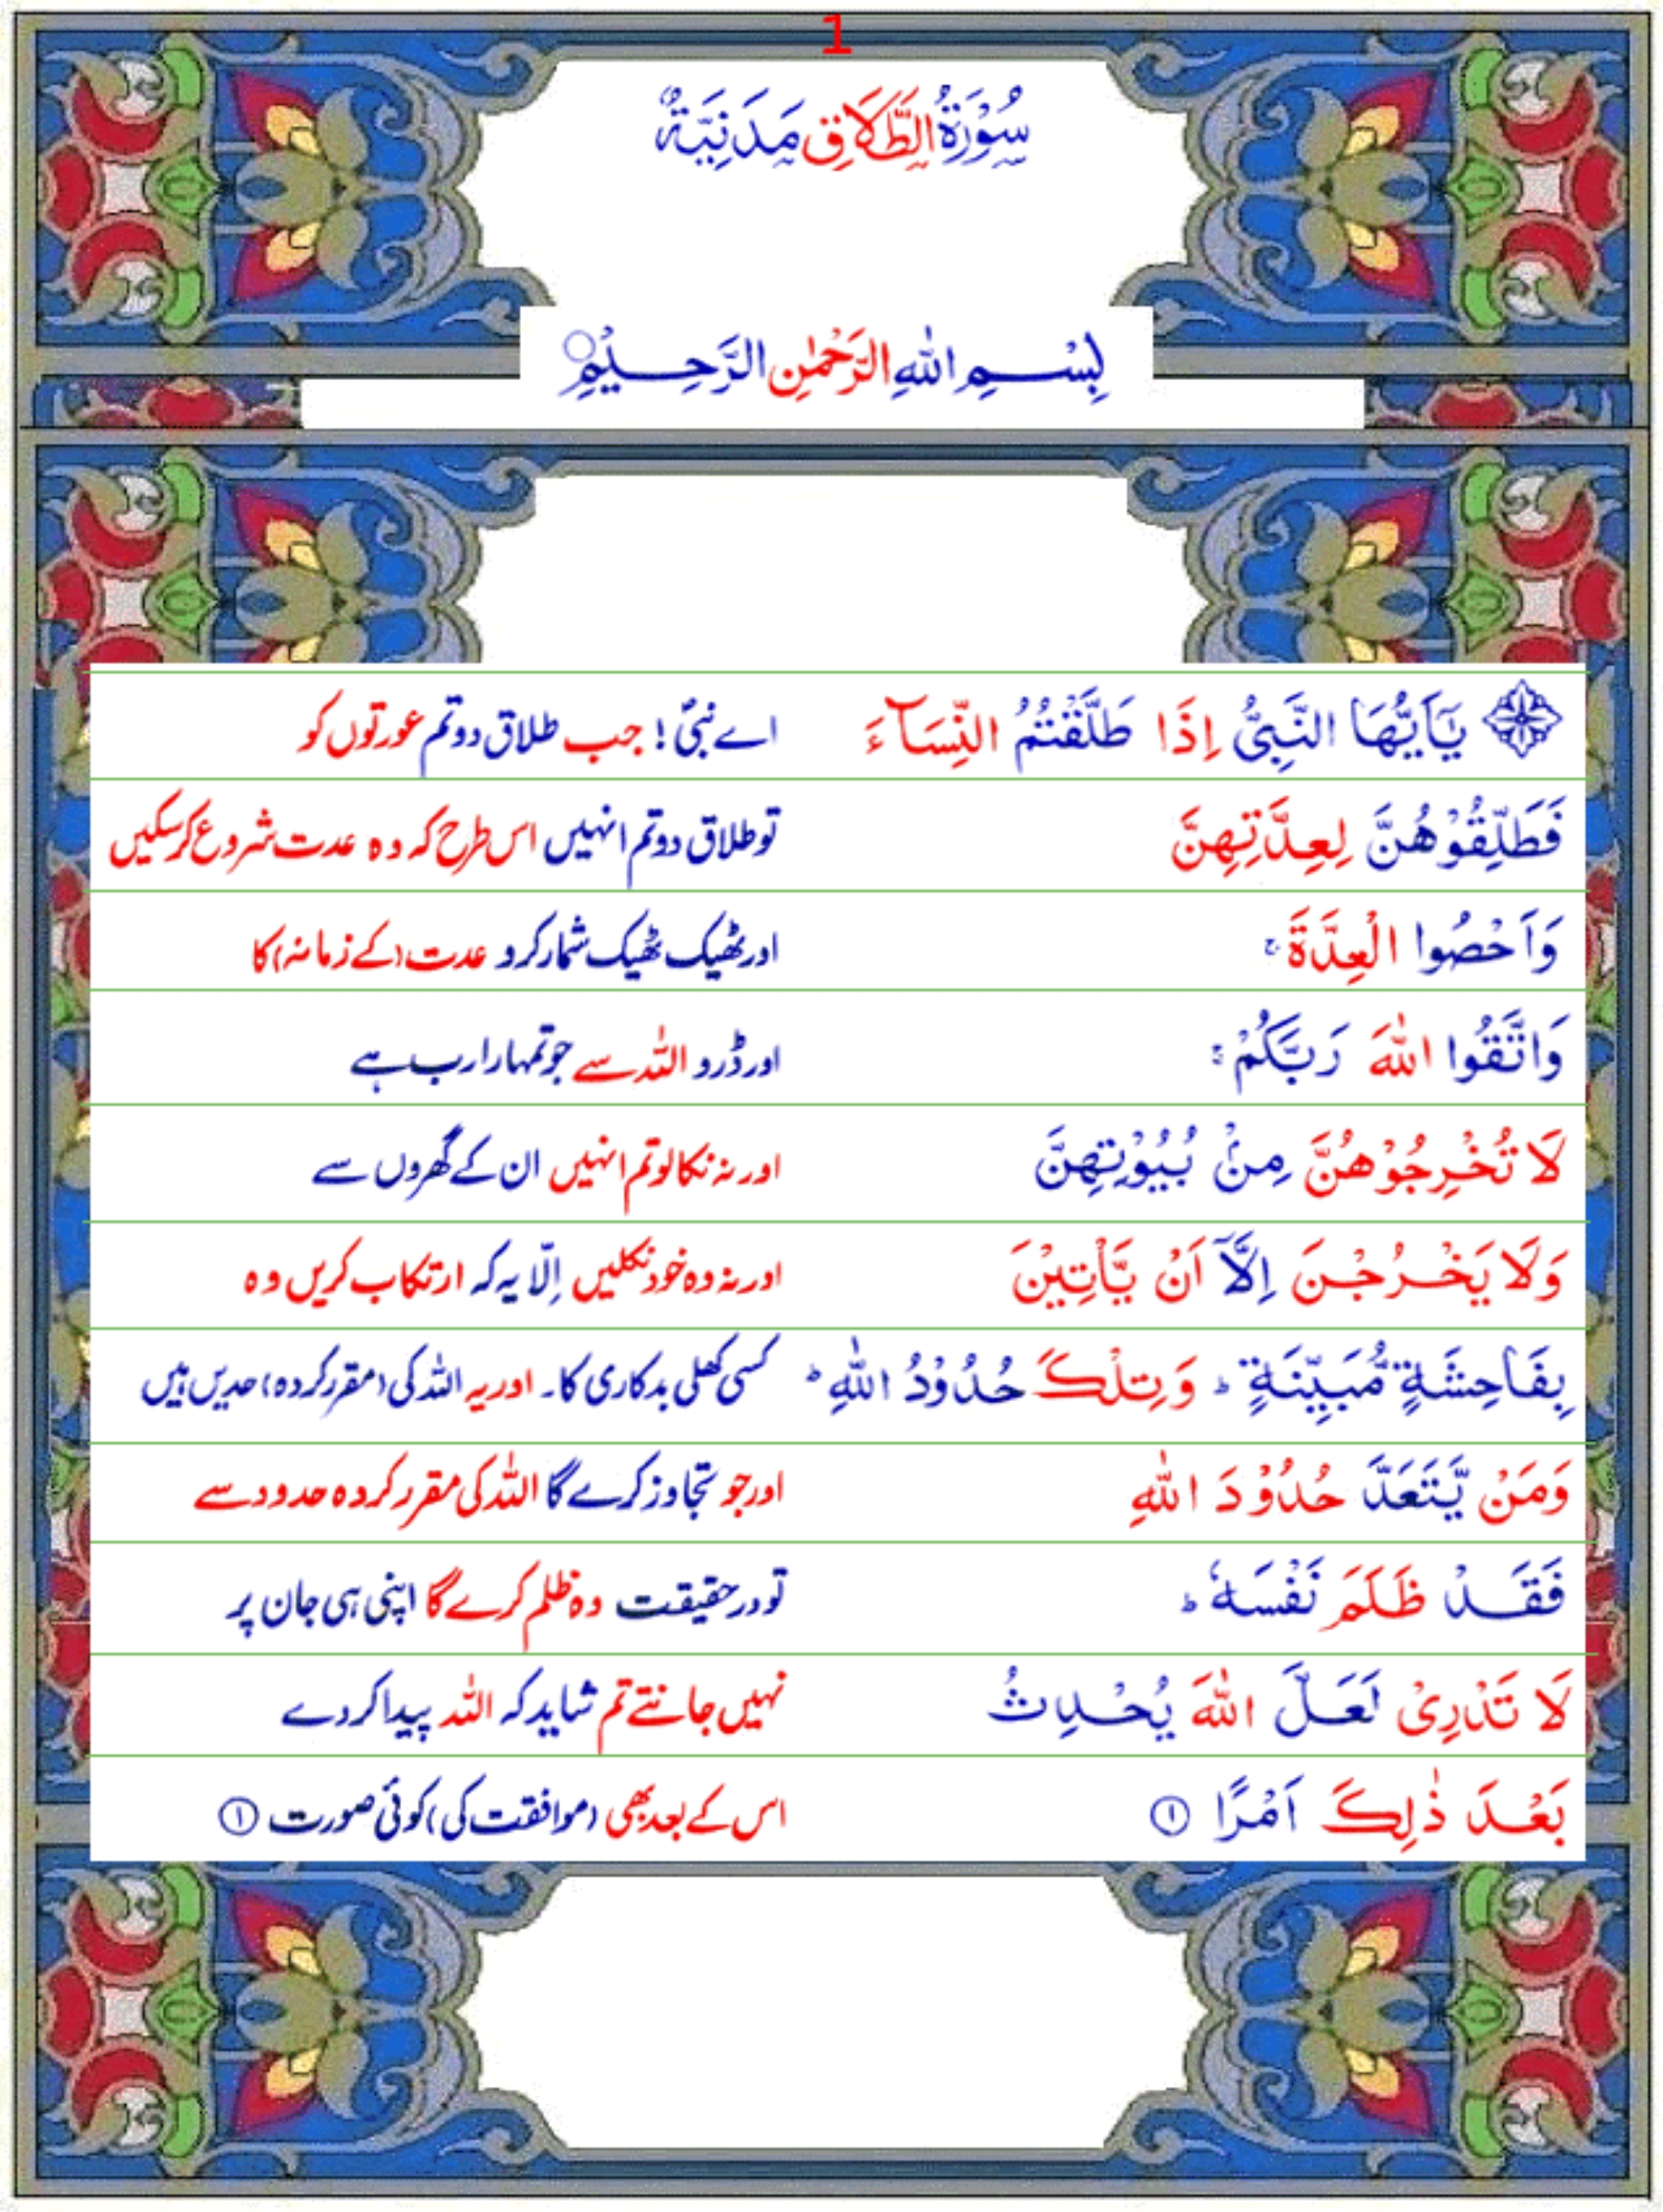 1
سُوْرَةُ الطَّلَاقِ مَدَنِيَّةٌ
بِسْمِ اللّٰهِ الرَّحْمٰنِ الرَّحِيْمِ
يٰۤاَيُّهَا النَّبِىُّ اِذَا طَلَّقْتُمُ النِّسَآءَ اے نبیؐ! جب طلاق دو تم عورتوں کو
فَطَلِّقُوْهُنَّ لِعِدَّتِهِنَّ تو طلاق دو تم انہیں اس طرح کہ وہ عدت شروع کرسکیں
وَاَحْصُوا الْعِدَّةَ ۚ اور ٹھیک ٹھیک شمار کرو عدت (کے زمانہ) کا
وَاتَّقُوا اللّٰهَ رَبَّكُمْ ۚ اور ڈرو اللہ سے جو تمہارا رب ہے
لَا تُخْرِجُوْهُنَّ مِنْۢ بُيُوْتِهِنَّ اور نہ نکالو تم انہیں ان کے گھروں سے
وَلَا يَخْرُجْنَ اِلَّاۤ اَنْ يَّاْتِيْنَ اور نہ وہ خود نکلیں اِلّا یہ کہ ارتکاب کریں وہ
بِفَاحِشَةٍ مُّبَيِّنَةٍ ؕ وَتِلْكَ حُدُوْدُ اللّٰهِ ؕ کسی کھلی بدکاری کا۔ اور یہ اللہ کی (مقرر کردہ) حدیں ہیں
وَمَنْ يَّتَعَدَّ حُدُوْدَ اللّٰهِ اور جو تجاوز کرے گا اللہ کی مقرر کردہ حدود سے
فَقَدْ ظَلَمَ نَفْسَهٗ ؕ تو درحقیقت وہ ظلم کرے گا اپنی ہی جان پر
لَا تَدْرِىْ لَعَلَّ اللّٰهَ يُحْدِثُ نہیں جانتے تم شاید کہ اللہ پیدا کردے
بَعْدَ ذٰلِكَ اَمْرًا ۝۱ اس کے بعد بھی (موافقت کی) کوئی صورت ۝۱